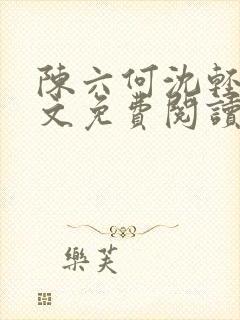 陳六何沈輕
文免費閱讀
樂芙